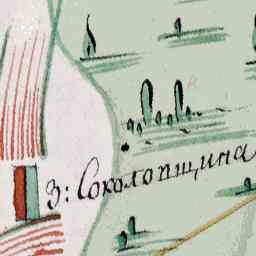 З: Соколопщина